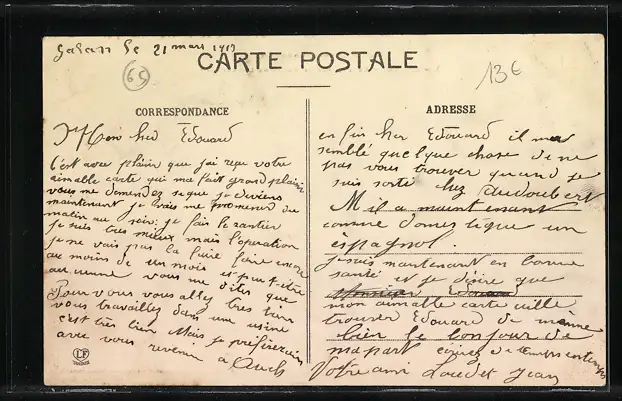 Galan le 21 mars 1919
CARTE POSTALE
65
13€
CORRESPONDANCE
Mon cher Edouard
C'est avec plaisir que j'ai reçu votre
aimable carte qui ma fait grand plaisir
vous me demandez se que je deviens
maintenant je vais me promener du
matin au soir. je fais le rantier
je suis tres mieux mais l'opération
je ne vais pas la faire faire encore
au moins de un mois et peut-être
aucune vous me dites que
Pour vous vous allez tres bien
vous travaillez dans une usine
c'est très bien Mais je préférerais
avec vous revenir à Auch
LF
ADRESSE
enfin cher Edouard il ma
semblé quelque chose de ne
pas vous trouver quand je
suis sorté chez Audoubert
M il a maintenant
comme domestique un
espagnol.
je suis maintenant en bonne
santé et je désire que
mon aimable carte ville
trouver Edouard de même
bien le bonjour de
ma part écrivez de temps en temps
Votre ami Loudet Jean